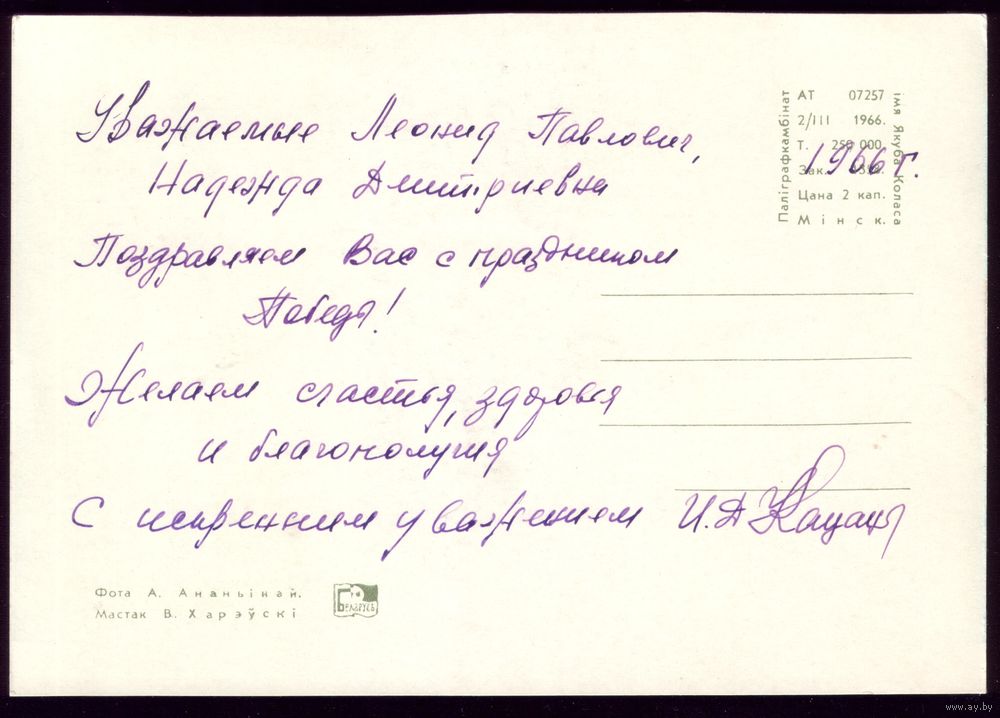 Уважаемые Леонид Павлович,
Надежда Дмитриевна
Поздравляем Вас с праздником
Победы!
Желаем счастья, здоровья
и благополучия
С искренним уважением И.Д.
1966 г.
АТ 07257
2/III 1966.
Т. 250 000.
Зак.
Цана 2 кап.
Мінск.
Паліграфкамбінат
імя Якуба Коласа
Фота А. Ананьінай.
Мастак В. Харэўскі
Беларусь
www.ay.by